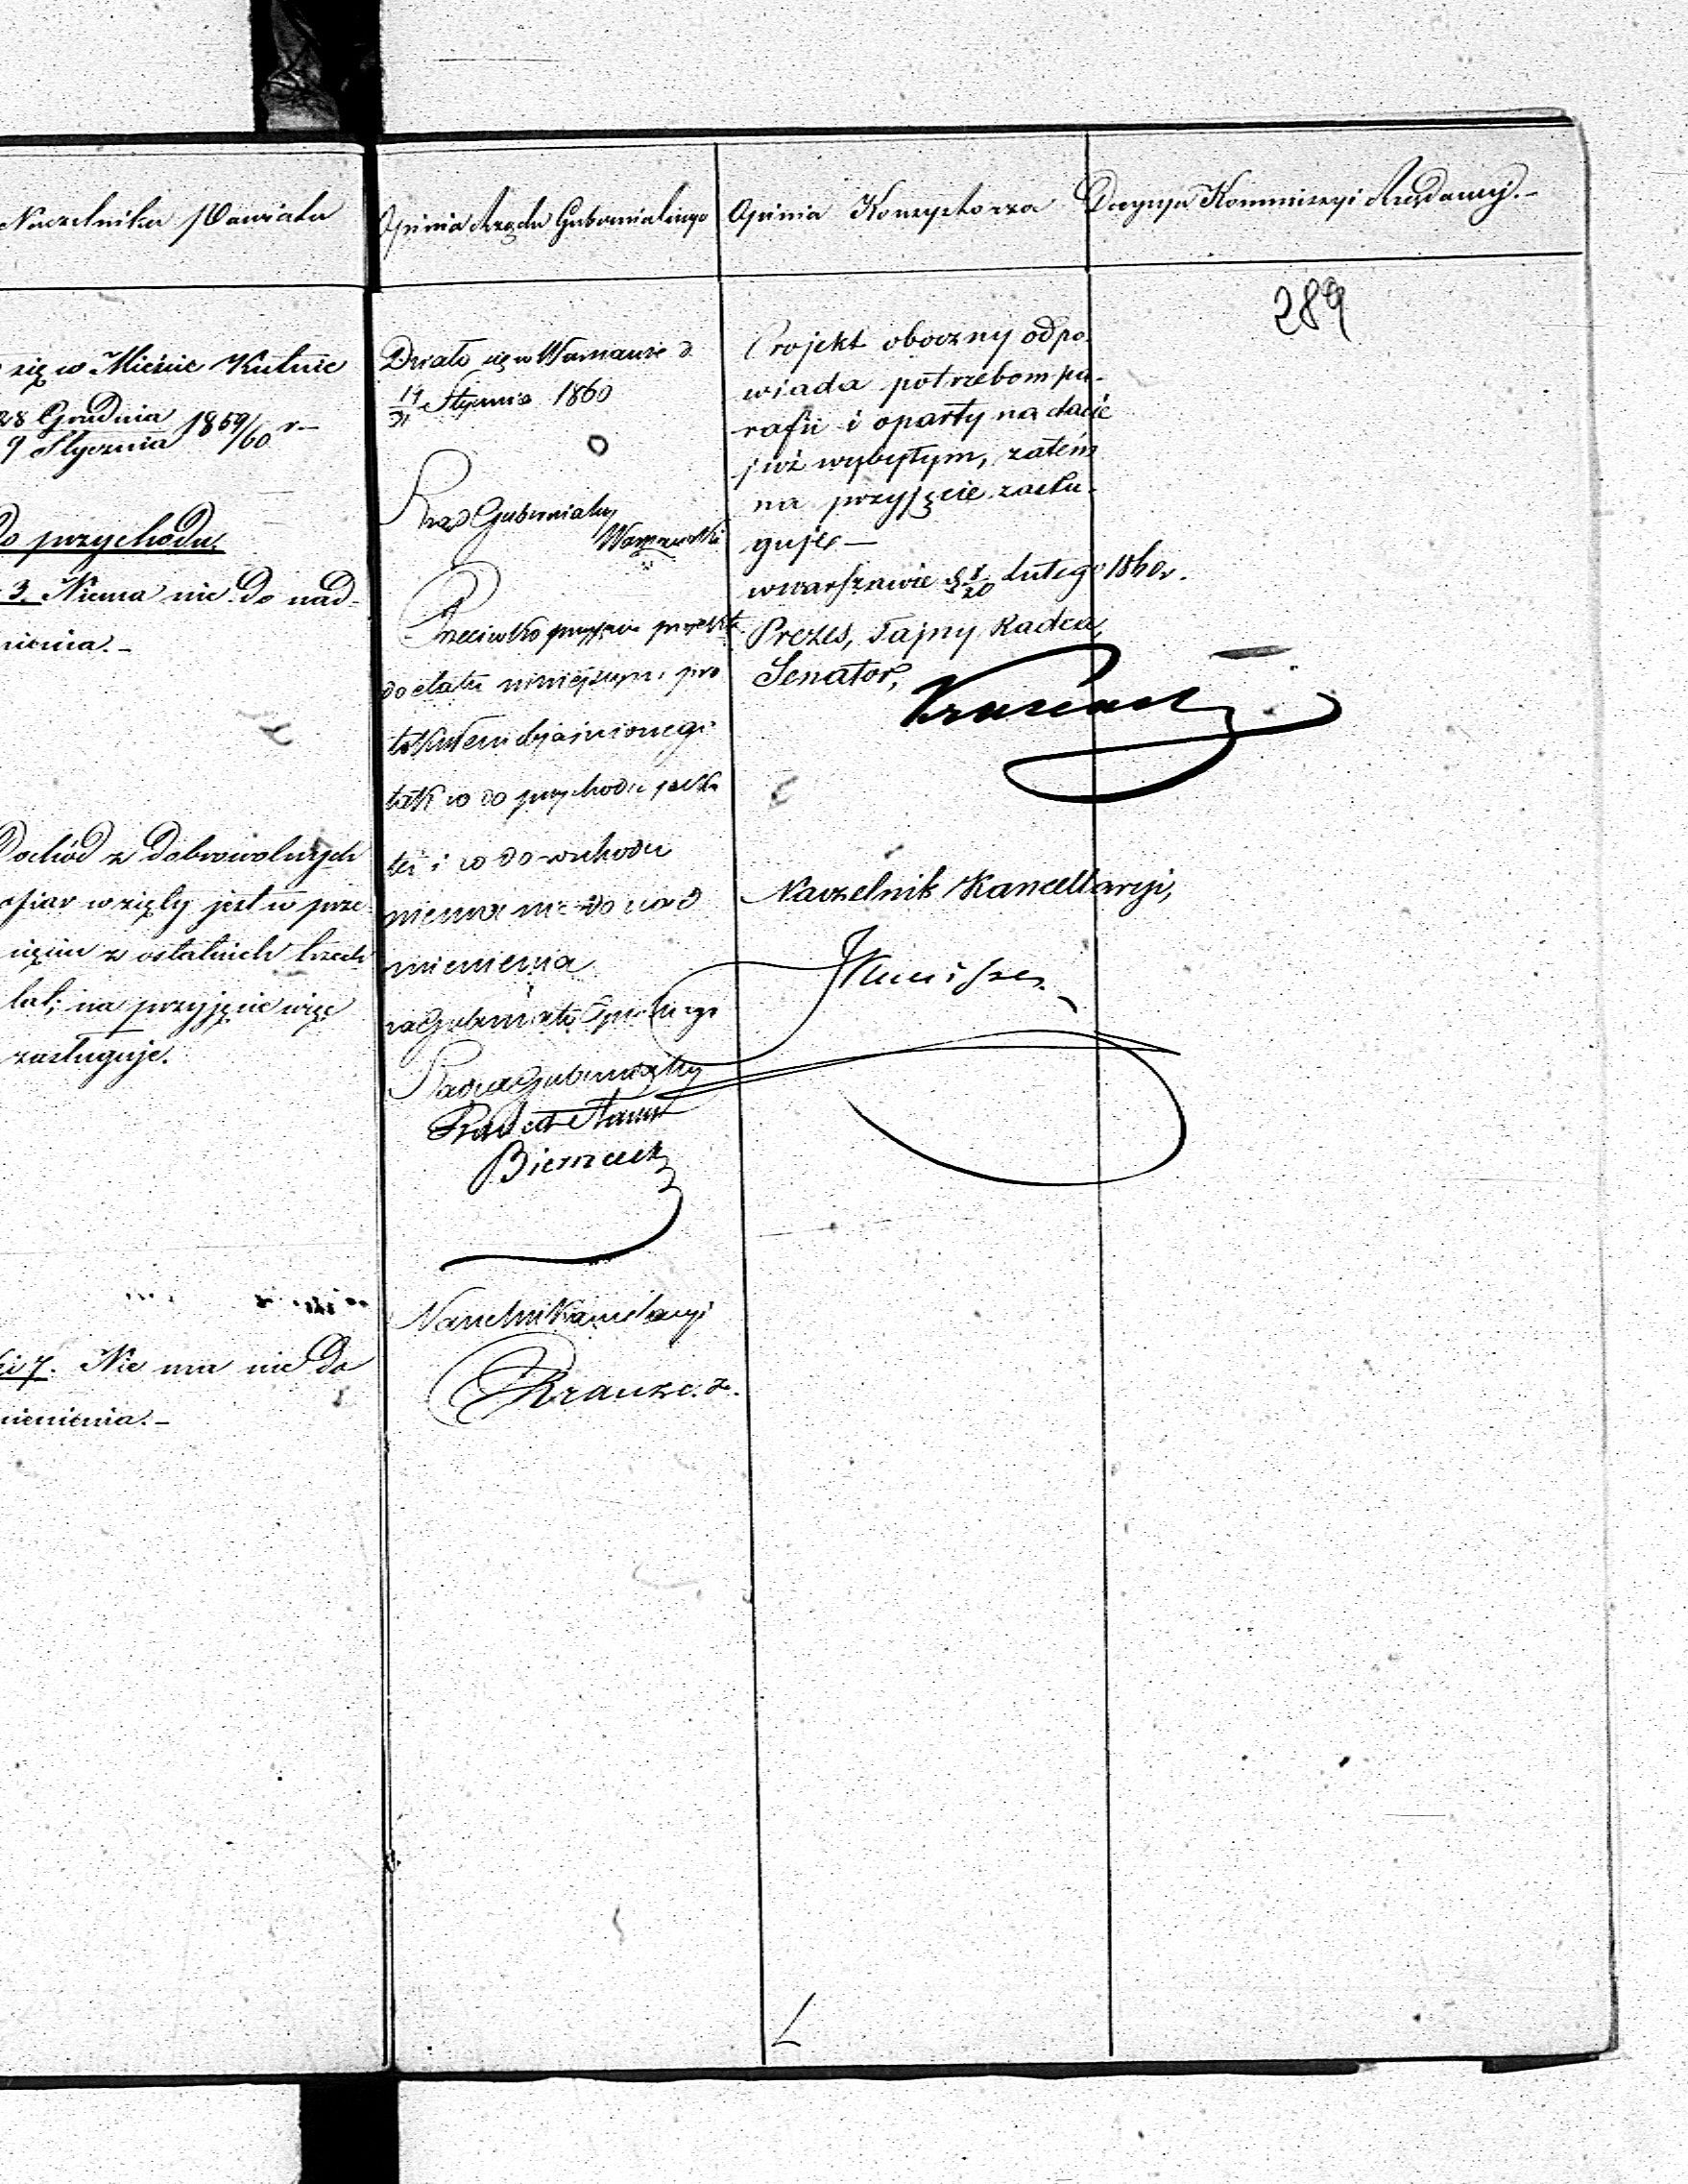 Naczelnika Powiatu
się w Mieście Kutnie
28 Grudnia
9 Stycznia 1859/60 r-
Do przychodu.
3. Niema nic do nad-
mienia.-
Dochód z dobrowolnych
ofiar wzięty jest w prze-
cięciu z ostatnich trzech
lat; na przyjęcie więc
zasługuje.
7. Nie ma nic do
mienienia.-
Opinia Rządu Gubernialnego
Działo się w Warszawie d.
19/31 Stycznia 1860
Rząd Gubernialny
Warszawski
Przeciwko przyjęciu projektu
do etatu niniejszym pro
tokułem objaśnionego
tak co do przychodu jako
też i co do rozchodu
niema nic do nad
mienienia
Radca Gubernialny
Radca Stanu
Biernacki
Naczelnik Kancelaryi
Krauze.
Opinia Konsystorza
Projekt oboczny odpo-
wiada potrzebom pa-
rafii i oparty na dacie
już wybytym, zatém
na przyjęcie zasłu-
guje-
w Warszawie d 8/20 Lutego 1860 r.
Prezes, Tajny Radca,
Senator,
Naczelnik Kancellaryi,
Decyzya Kommissyi Rządowej.-
289